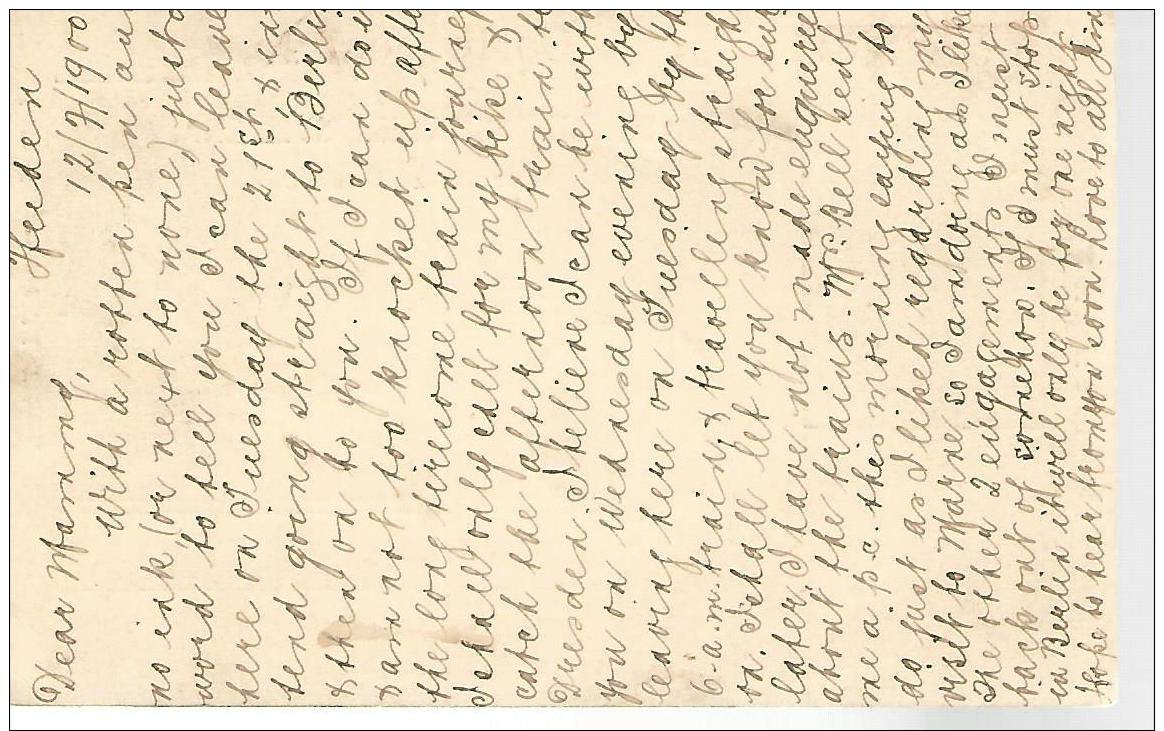 Heden
12/7/1900
Dear Mammy,
With a rotten pen an
no ink (or next to none) just a
word to tell you I can leave
here on Tuesday the 21st & in
tend going straight to Berli
& then on to you. If I can do i
& am not too knocked up afte
the long tiresome train journey
I shall only call for my bike &
catch the afternoon train to
Dresden. I believe I can be with
you on Wednesday evening by
leaving here on Tuesday by th
6 a.m. train & travelling straigh
on. I shall let you know for sur
later, I have not made enquiries
about the trains. Mrs. Bell sent
me a p.c. this morning saying to
do just as I liked regarding my
visit to Marne so I am doing as I like
The other 2 engagements I must
back out of somehow. If I must stop
in Berlin it will only be for one night
Hope to hear from you soon. Love to all Jim